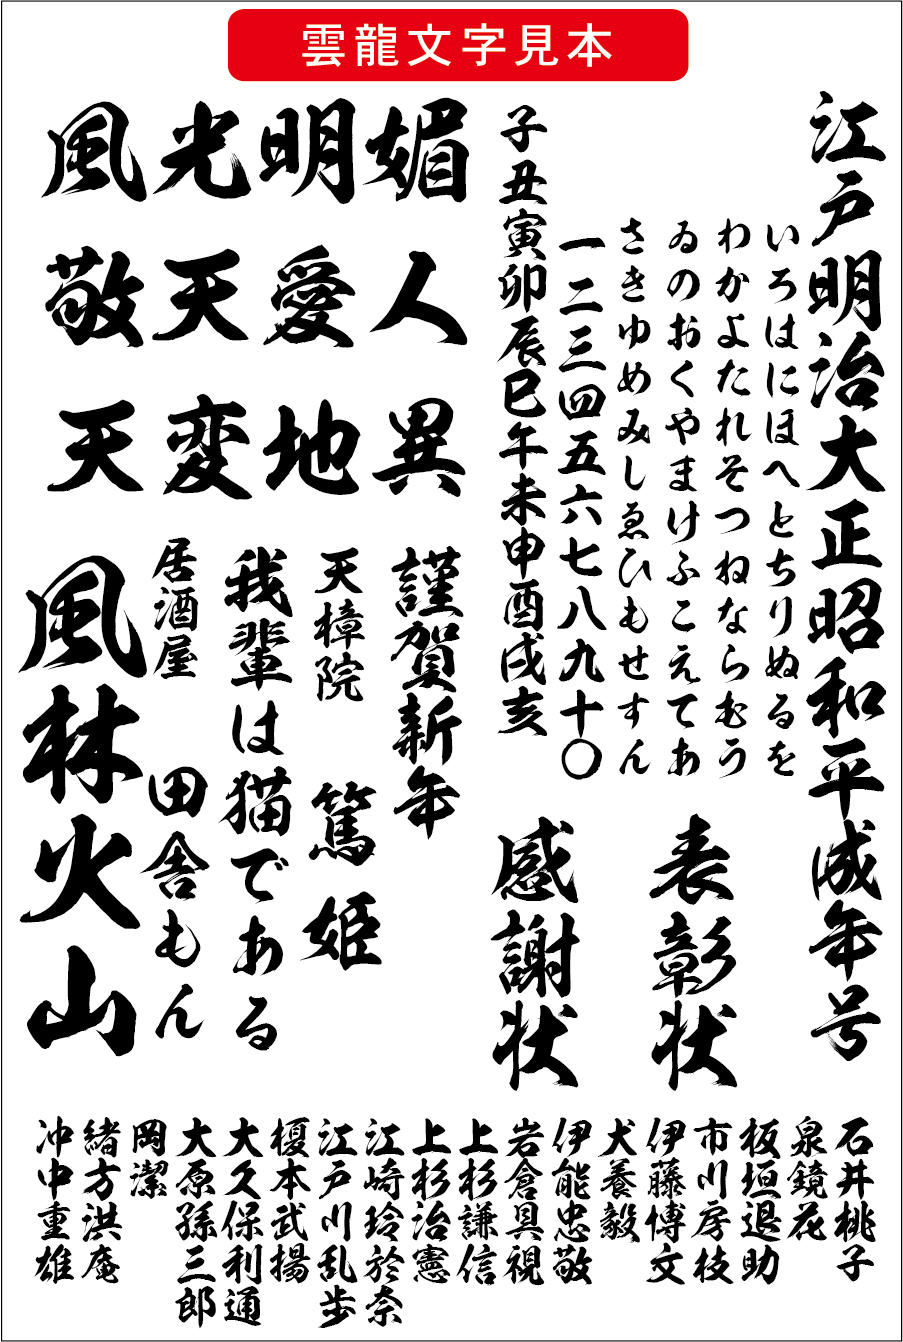 雲龍文字見本
江戸明治大正昭和平成年号
いろはにほへとちりぬるを
わかよたれそつねならむう
ゐのおくやまけふこえてあ
さきゆめみしゑひもせすん
一二三四五六七八九十〇
子丑寅卯辰巳午未申酉戌亥
表彰状
感謝状
媚人異
明愛地
光天変
風敬天
謹賀新年
天樟院 篤姫
我輩は猫である
居酒屋 田舎もん
風林火山
石井桃子
泉鏡花
板垣退助
市川房枝
伊藤博文
犬養毅
伊能忠敬
岩倉具視
上杉謙信
上杉治憲
江崎玲於奈
江戸川乱歩
榎本武揚
大久保利通
大原孫三郎
岡潔
緒方洪庵
沖中重雄